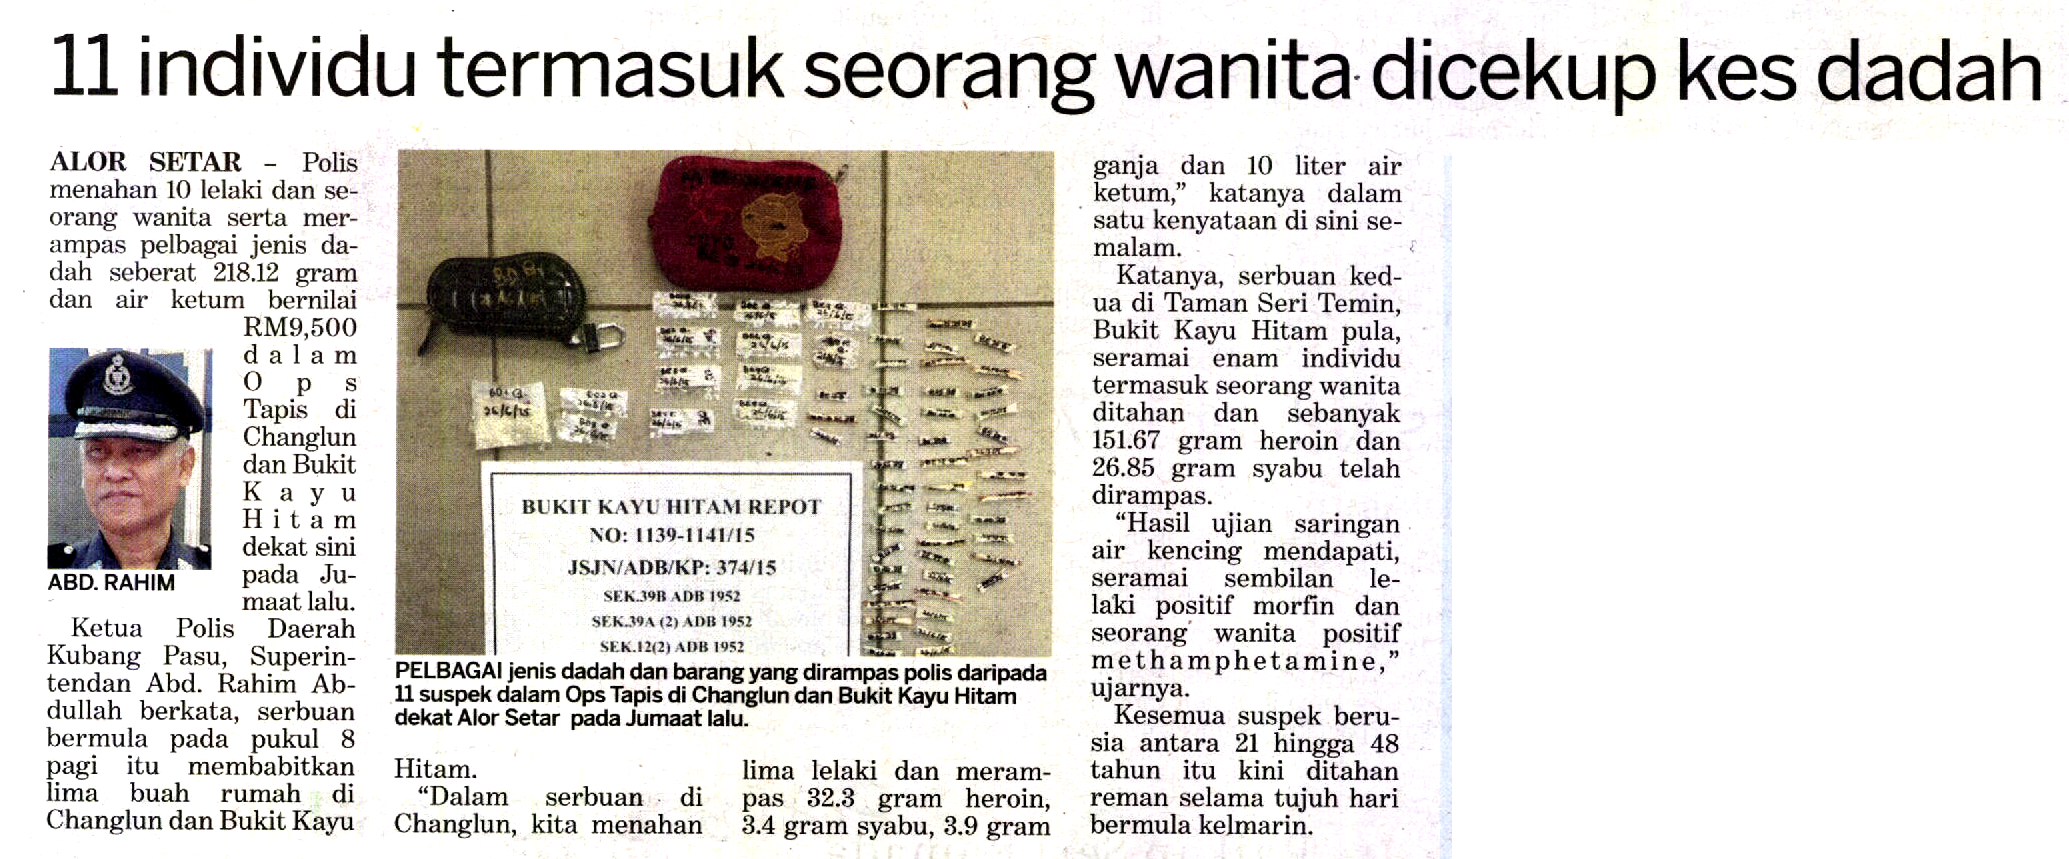 11 individu termasuk seorang wanita dicekup kes dadah
ALOR SETAR – Polis
menahan 10 lelaki dan se-
orang wanita serta mer-
ampas pelbagai jenis da-
dah seberat 218.12 gram
dan air ketum bernilai
RM9,500
dalam
Ops
Tapis di
Changlun
dan Bukit
Kayu
Hitam
dekat sini
pada Ju-
maat lalu.
ABD. RAHIM
Ketua Polis Daerah
Kubang Pasu, Superin-
tendan Abd. Rahim Ab-
dullah berkata, serbuan
bermula pada pukul 8
pagi itu membabitkan
lima buah rumah di
Changlun dan Bukit Kayu
BUKIT KAYU HITAM REPOT
NO: 1139-1141/15
JSJN/ADB/KP: 374/15
SEK.39B ADB 1952
SEK.39A (2) ADB 1952
SEK.12(2) ADB 1952
PELBAGAI jenis dadah dan barang yang dirampas polis daripada
11 suspek dalam Ops Tapis di Changlun dan Bukit Kayu Hitam
dekat Alor Setar pada Jumaat lalu.
Hitam.
“Dalam serbuan di
Changlun, kita menahan
lima lelaki dan meram-
pas 32.3 gram heroin,
3.4 gram syabu, 3.9 gram
ganja dan 10 liter air
ketum,” katanya dalam
satu kenyataan di sini se-
malam.
Katanya, serbuan ked-
ua di Taman Seri Temin,
Bukit Kayu Hitam pula,
seramai enam individu
termasuk seorang wanita
ditahan dan sebanyak
151.67 gram heroin dan
26.85 gram syabu telah
dirampas.
“Hasil ujian saringan
air kencing mendapati,
seramai sembilan le-
laki positif morfin dan
seorang wanita positif
methamphetamine,”
ujarnya.
Kesemua suspek beru-
sia antara 21 hingga 48
tahun itu kini ditahan
reman selama tujuh hari
bermula kelmarin.